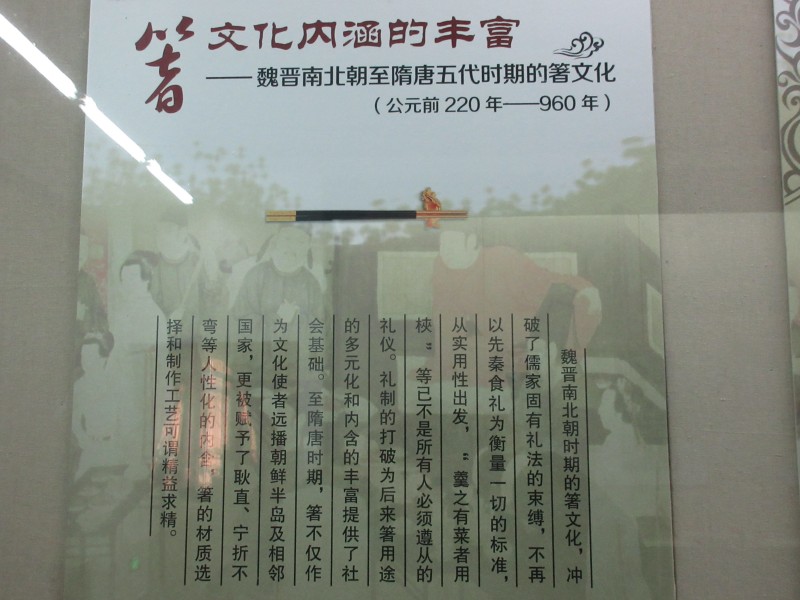 箸文化内涵的丰富
——魏晋南北朝至隋唐五代时期的箸文化
（公元前220年——960年）
魏晋南北朝时期的箸文化，冲
破了儒家固有礼法的束缚，不再
以先秦食礼为衡量一切的标准，
从实用性出发，“羹之有菜者用
梜”等已不是所有人必须遵从的
礼仪。礼制的打破为后来箸用途
的多元化和内含的丰富提供了社
会基础。至隋唐时期，箸不仅作
为文化使者远播朝鲜半岛及相邻
国家，更被赋予了耿直、宁折不
弯等人性化的内含，箸的材质选
择和制作工艺可谓精益求精。